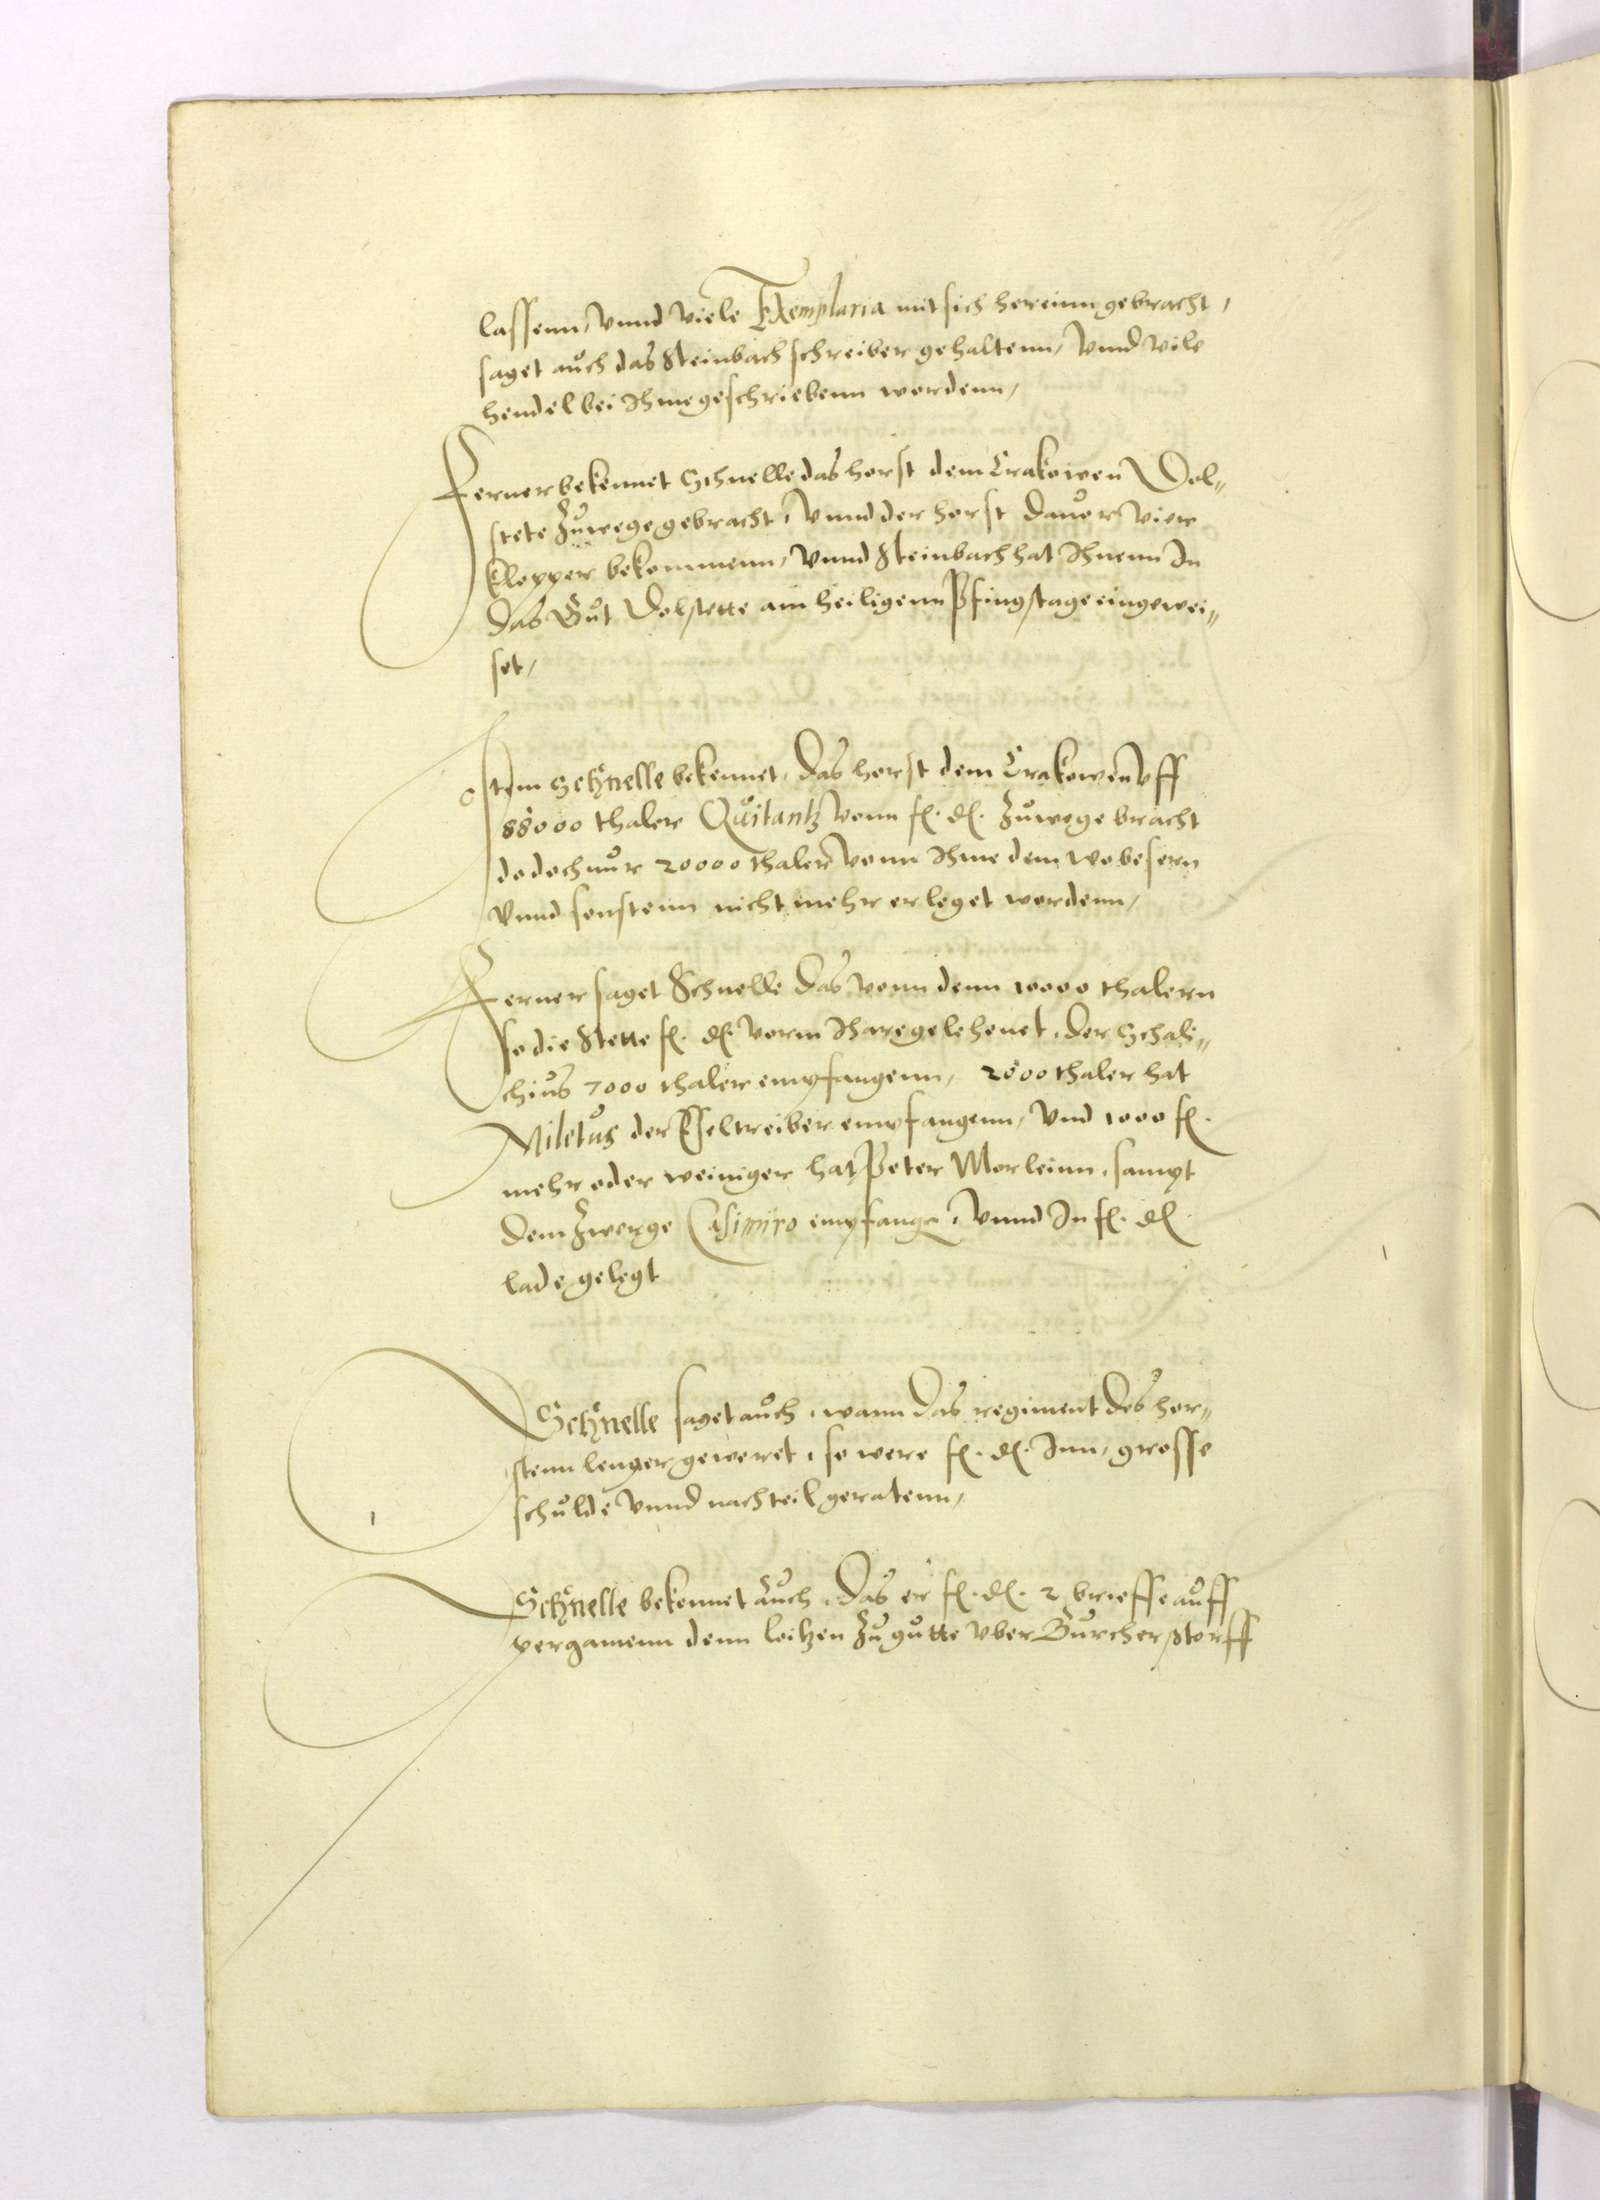 lassenn, vnnd viele Exemplaria mit sich hereinn gebracht,
saget auch das Steinbach schreiber gehaltenn, vnnd vile
hendel bei Ihme geschriebenn wordenn,
Ferner bekennet Schnelle das horst dem Crakowen Dol„
stete zuwege gebracht, vnnd der horst dauor vier
Klepper bekommenn, vnnd Steinbach hat Ihnenn In
das Gut Dolstette am heiligenn Pfingstage eingewei„
set,
Item Schnelle bekennet, das horst dem Crakowen vff
88000 thaler Quitantz vonn f. d. zuwege bracht
do doch nur 20000 thaler vonn Ihme dem wobesern
vnnd sonstenn nicht mehr erleget wordenn,
Ferner saget Schnelle das vonn denn 10000 thalern
so die Stette f. d. vorm Ihare gelehenet, der Schali„
chius 7000 thaler empfangenn, 2000 thaler hat
Miletus der Eseltreiber empfangenn, vnd 1000 f.
mehr oder weiniger hat Peter Morleinn, sampt
dem Zwerge Casimiro empfange, vnnd In f. d.
lade gelegt
Schnelle saget auch, wann das regiment des hor„
stenn lenger geweret, so were f. d. Inn, grosse
schulde vnnd nachteil geratenn,
Schnelle bekennet auch, das er f. d. 2 brieffe auff
pergamenn denn loitzen zu gutte vber Burcherstorff